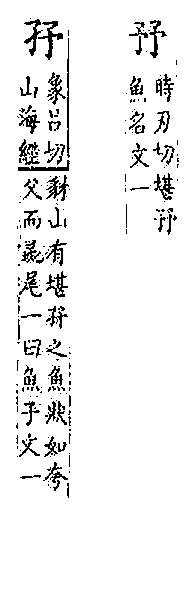 時刃切堪
魚名文一
㐨
象呂切
山海經
豺山有堪㐨之魚狀如夸
父而彘尾一曰魚子文一